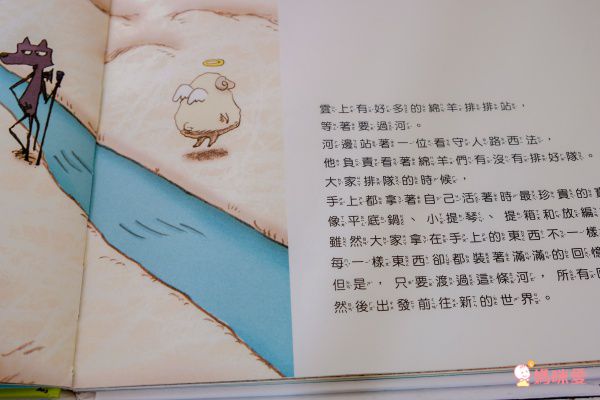 雲上有好多的綿羊排排站，
等著要過河。
河邊站著一位看守人路西法，
他負責看著綿羊們有沒有排好隊。
大家排隊的時候，
手上都拿著自己活著時最珍貴的
像平底鍋、小提琴、提箱和放編
雖然大家拿在手上的東西不一樣
每一樣東西卻都裝著滿滿的回憶
但是，只要渡過這條河，所有
然後出發前往新的世界。
媽咪愛